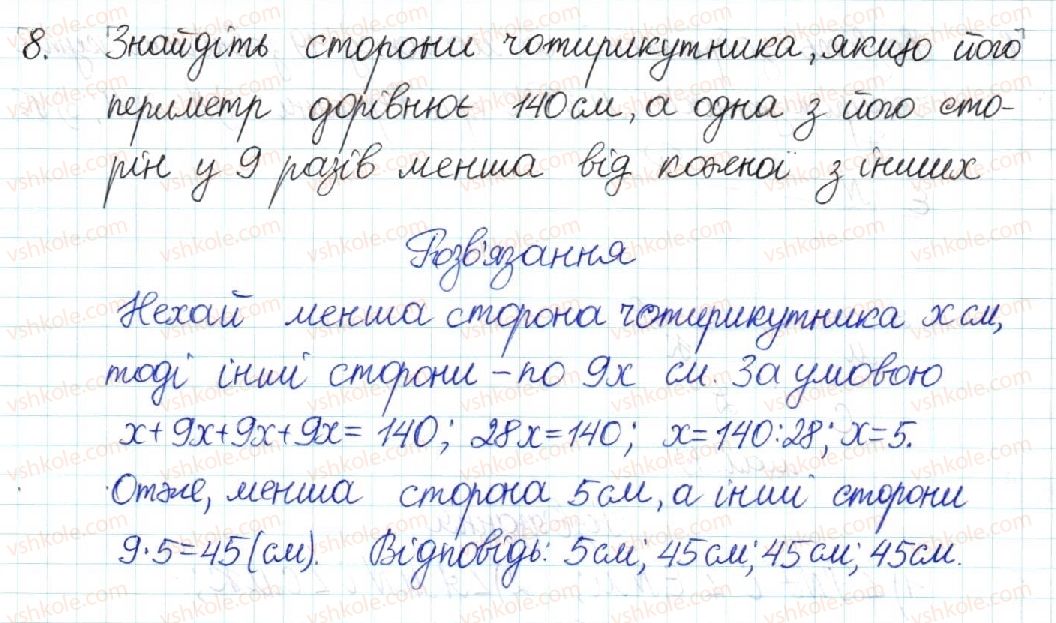 8. Знайдіть сторони чотирикутника, якщо його
периметр дорівнює 140 см, а одна з його сто-
рін у 9 разів менша від кожної з інших
Розв'язання
Нехай менша сторона чотирикутника x см,
тоді інші сторони – по 9x см. За умовою
x+9x+9x+9x=140; 28x=140; x=140:28; x=5.
Отже, менша сторона 5 см, а інші сторони
9·5=45(см). Відповідь: 5см; 45см; 45см; 45см.